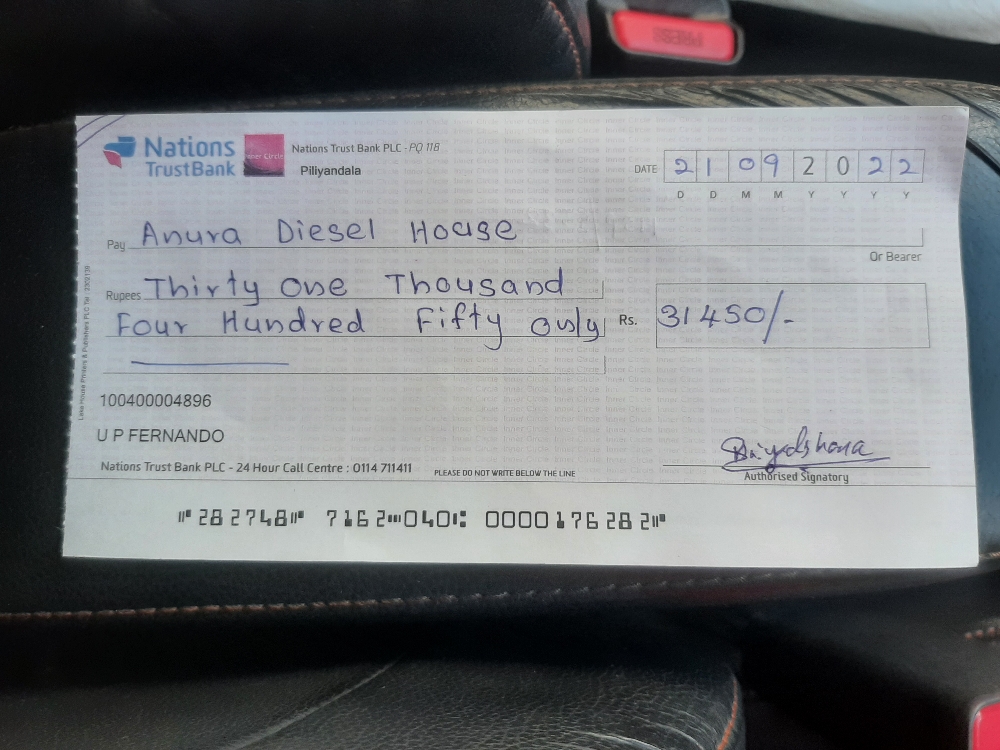 PRESS
Nations
TrustBank
Inner Circle
Nations Trust Bank PLC - PQ 118
Piliyandala
DATE 21 09 2022
D D M M Y Y Y Y
Pay Anura Diesel House
Or Bearer
Rupees Thirty One Thousand
Four Hundred Fifty only
Rs. 31450/-
Lake House Printers & Publishers PLC
100400004896
U P FERNANDO
Nations Trust Bank PLC - 24 Hour Call Centre : 0114 711411
PLEASE DO NOT WRITE BELOW THE LINE
Authorised Signatory
⑈282748⑈ 7162⑉040⑆ 0000176282⑈